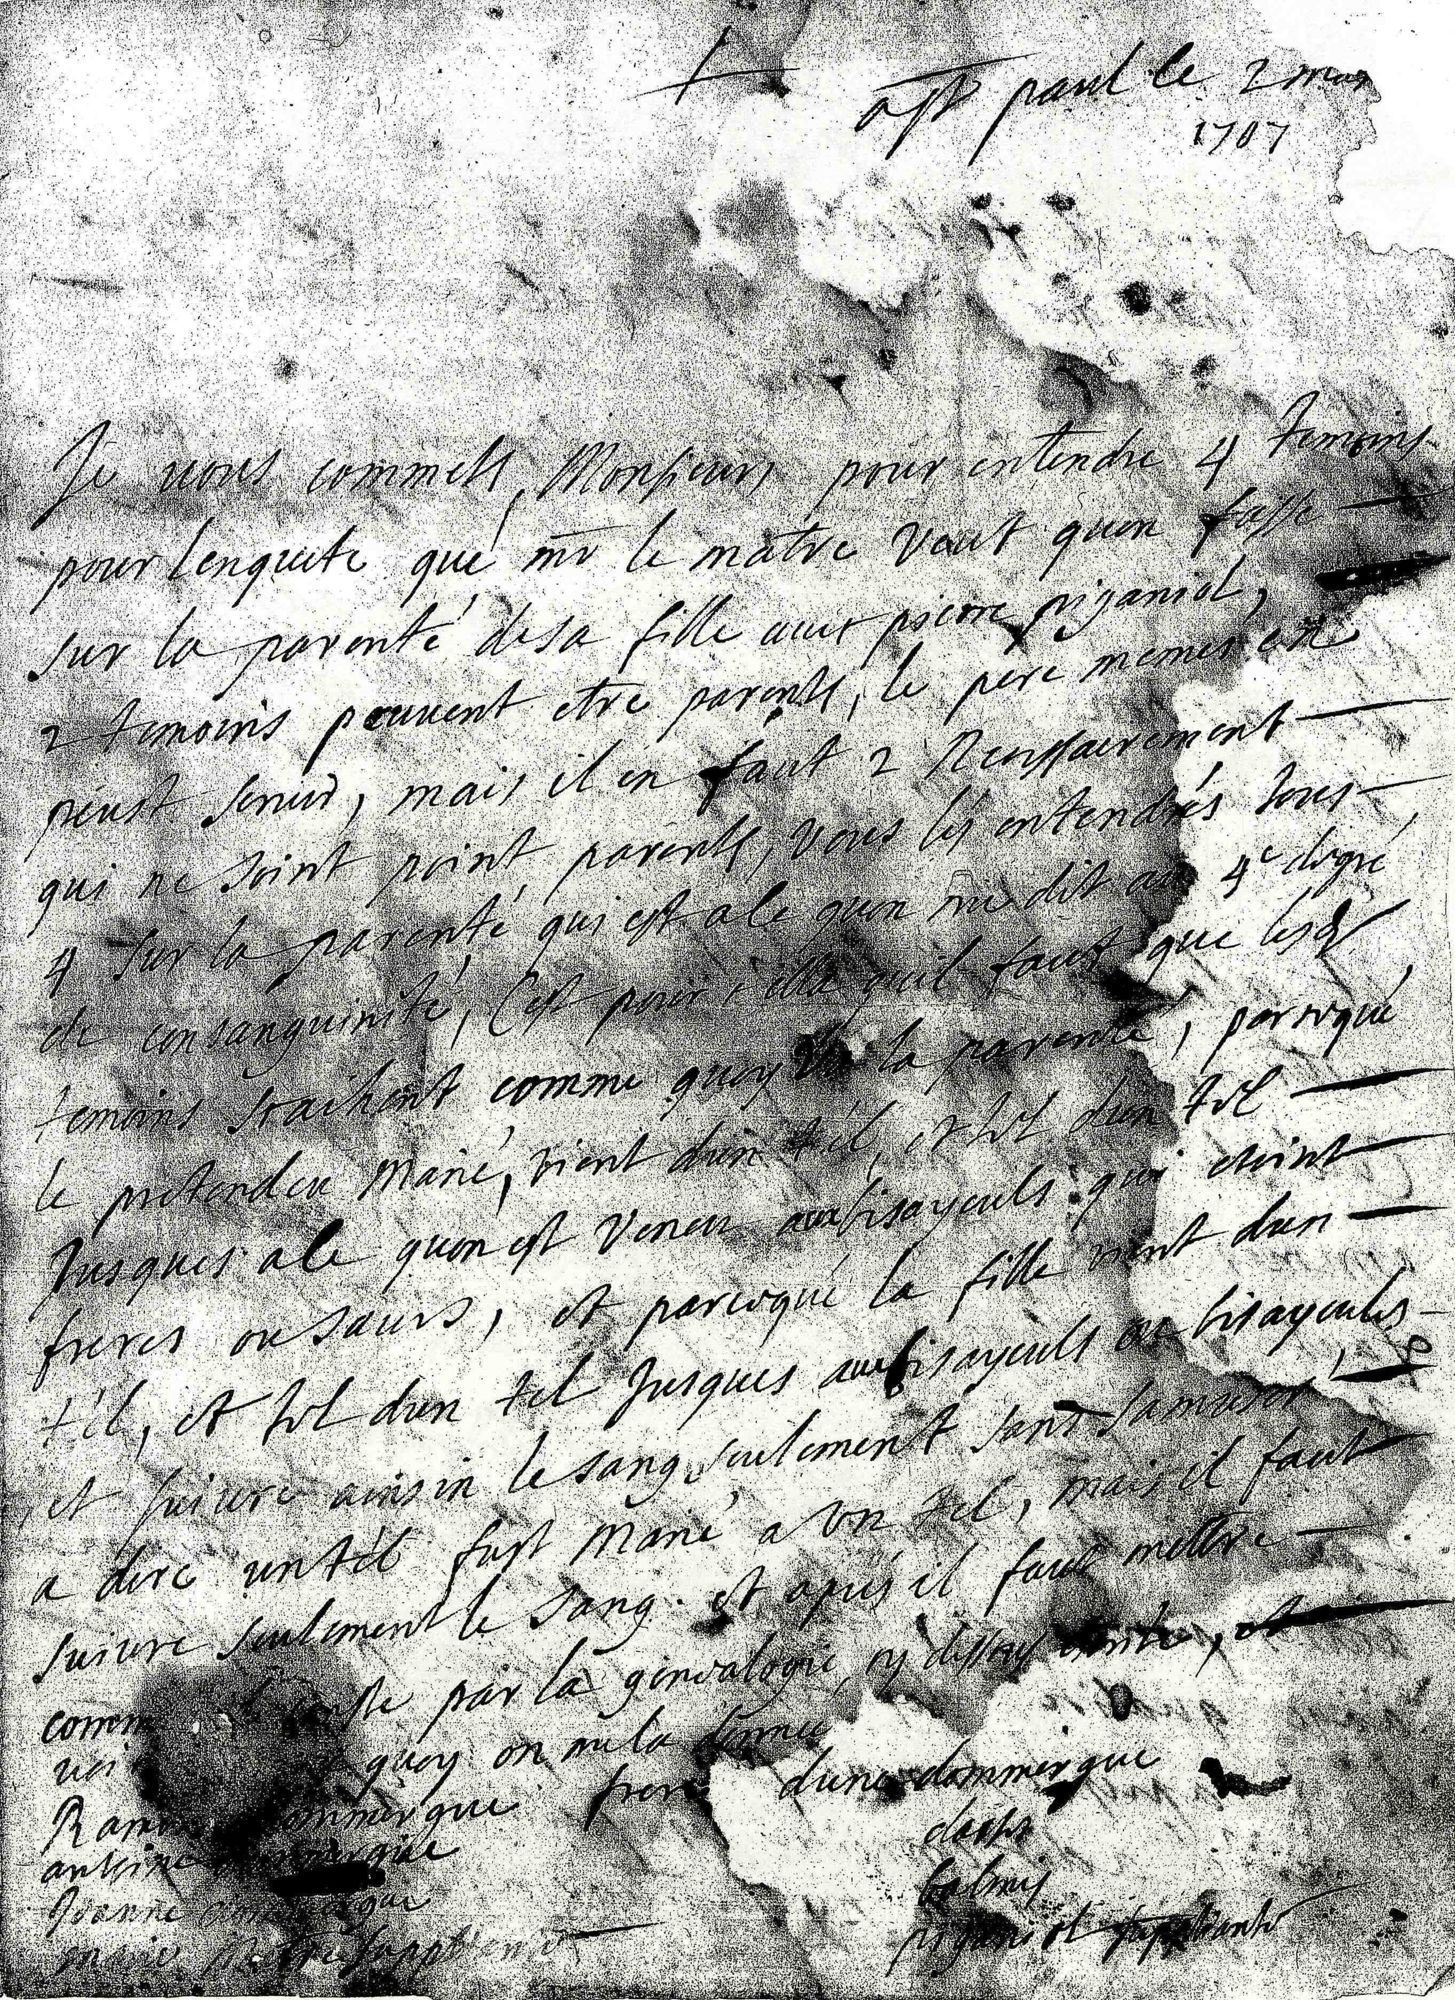 a st paul le 2 mars
1707
Je vous commets, Monsieur, pour entendre 4 temoins
pour lenquete qué mr le maitre veut quon fasse
sur la parenté desa fille avec pierre piganiol,
2 temoins peuvent etre parents, le pere memes en
peust servir, mais il en faut 2 necessairement
qui ne soint point parents, vous les entendrés tous
4 sur la parenté, qui est a ce quon me dit au 4e degré
de consanguinité, Cest pour cella quil faut que les
temoins scachent comme quoy la parenté, parceque
le pretendeu Marié, vient dun tel, et tel dun tel
Jusques ace quon est veneu aux bisayeuls qui etoint
freres ou saurs, et parceque la fille vient dun
tel, et tel dun tel Jusques aux bisayeuls ou bisayeules
et suivre ainsin le sang seulement sans samuser
a dire un tel fust Marié a un tel, mais il faut
suivre seulement le sang. et apres il faut mettre
comme par la genealogie cy dessous, et
quoy on me la donnée
dommergue frere dune dommergue
antoine dommergue
Jeanne dommergue
marie
balmis
piganiol